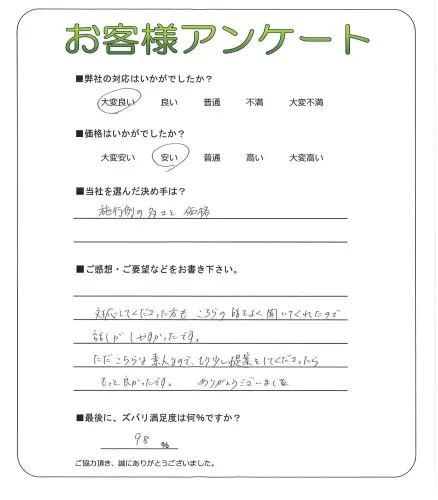 お客様アンケート
■弊社の対応はいかがでしたか？
大変良い 良い 普通 不満 大変不満
■価格はいかがでしたか？
大変安い 安い 普通 高い 大変高い
■当社を選んだ決め手は？
施行例の多さと 価格
■ご感想・ご要望などをお書き下さい。
対応してくださった方も こちらの話をよく聞いてくれたので
話しが しやすかったです。
ただこちらは素人なので、もう少し提案をしてくださったら
もっと良かったです。 ありがとうございました
■最後に、ズバリ満足度は何%ですか？
98 %
ご協力頂き、誠にありがとうございました。